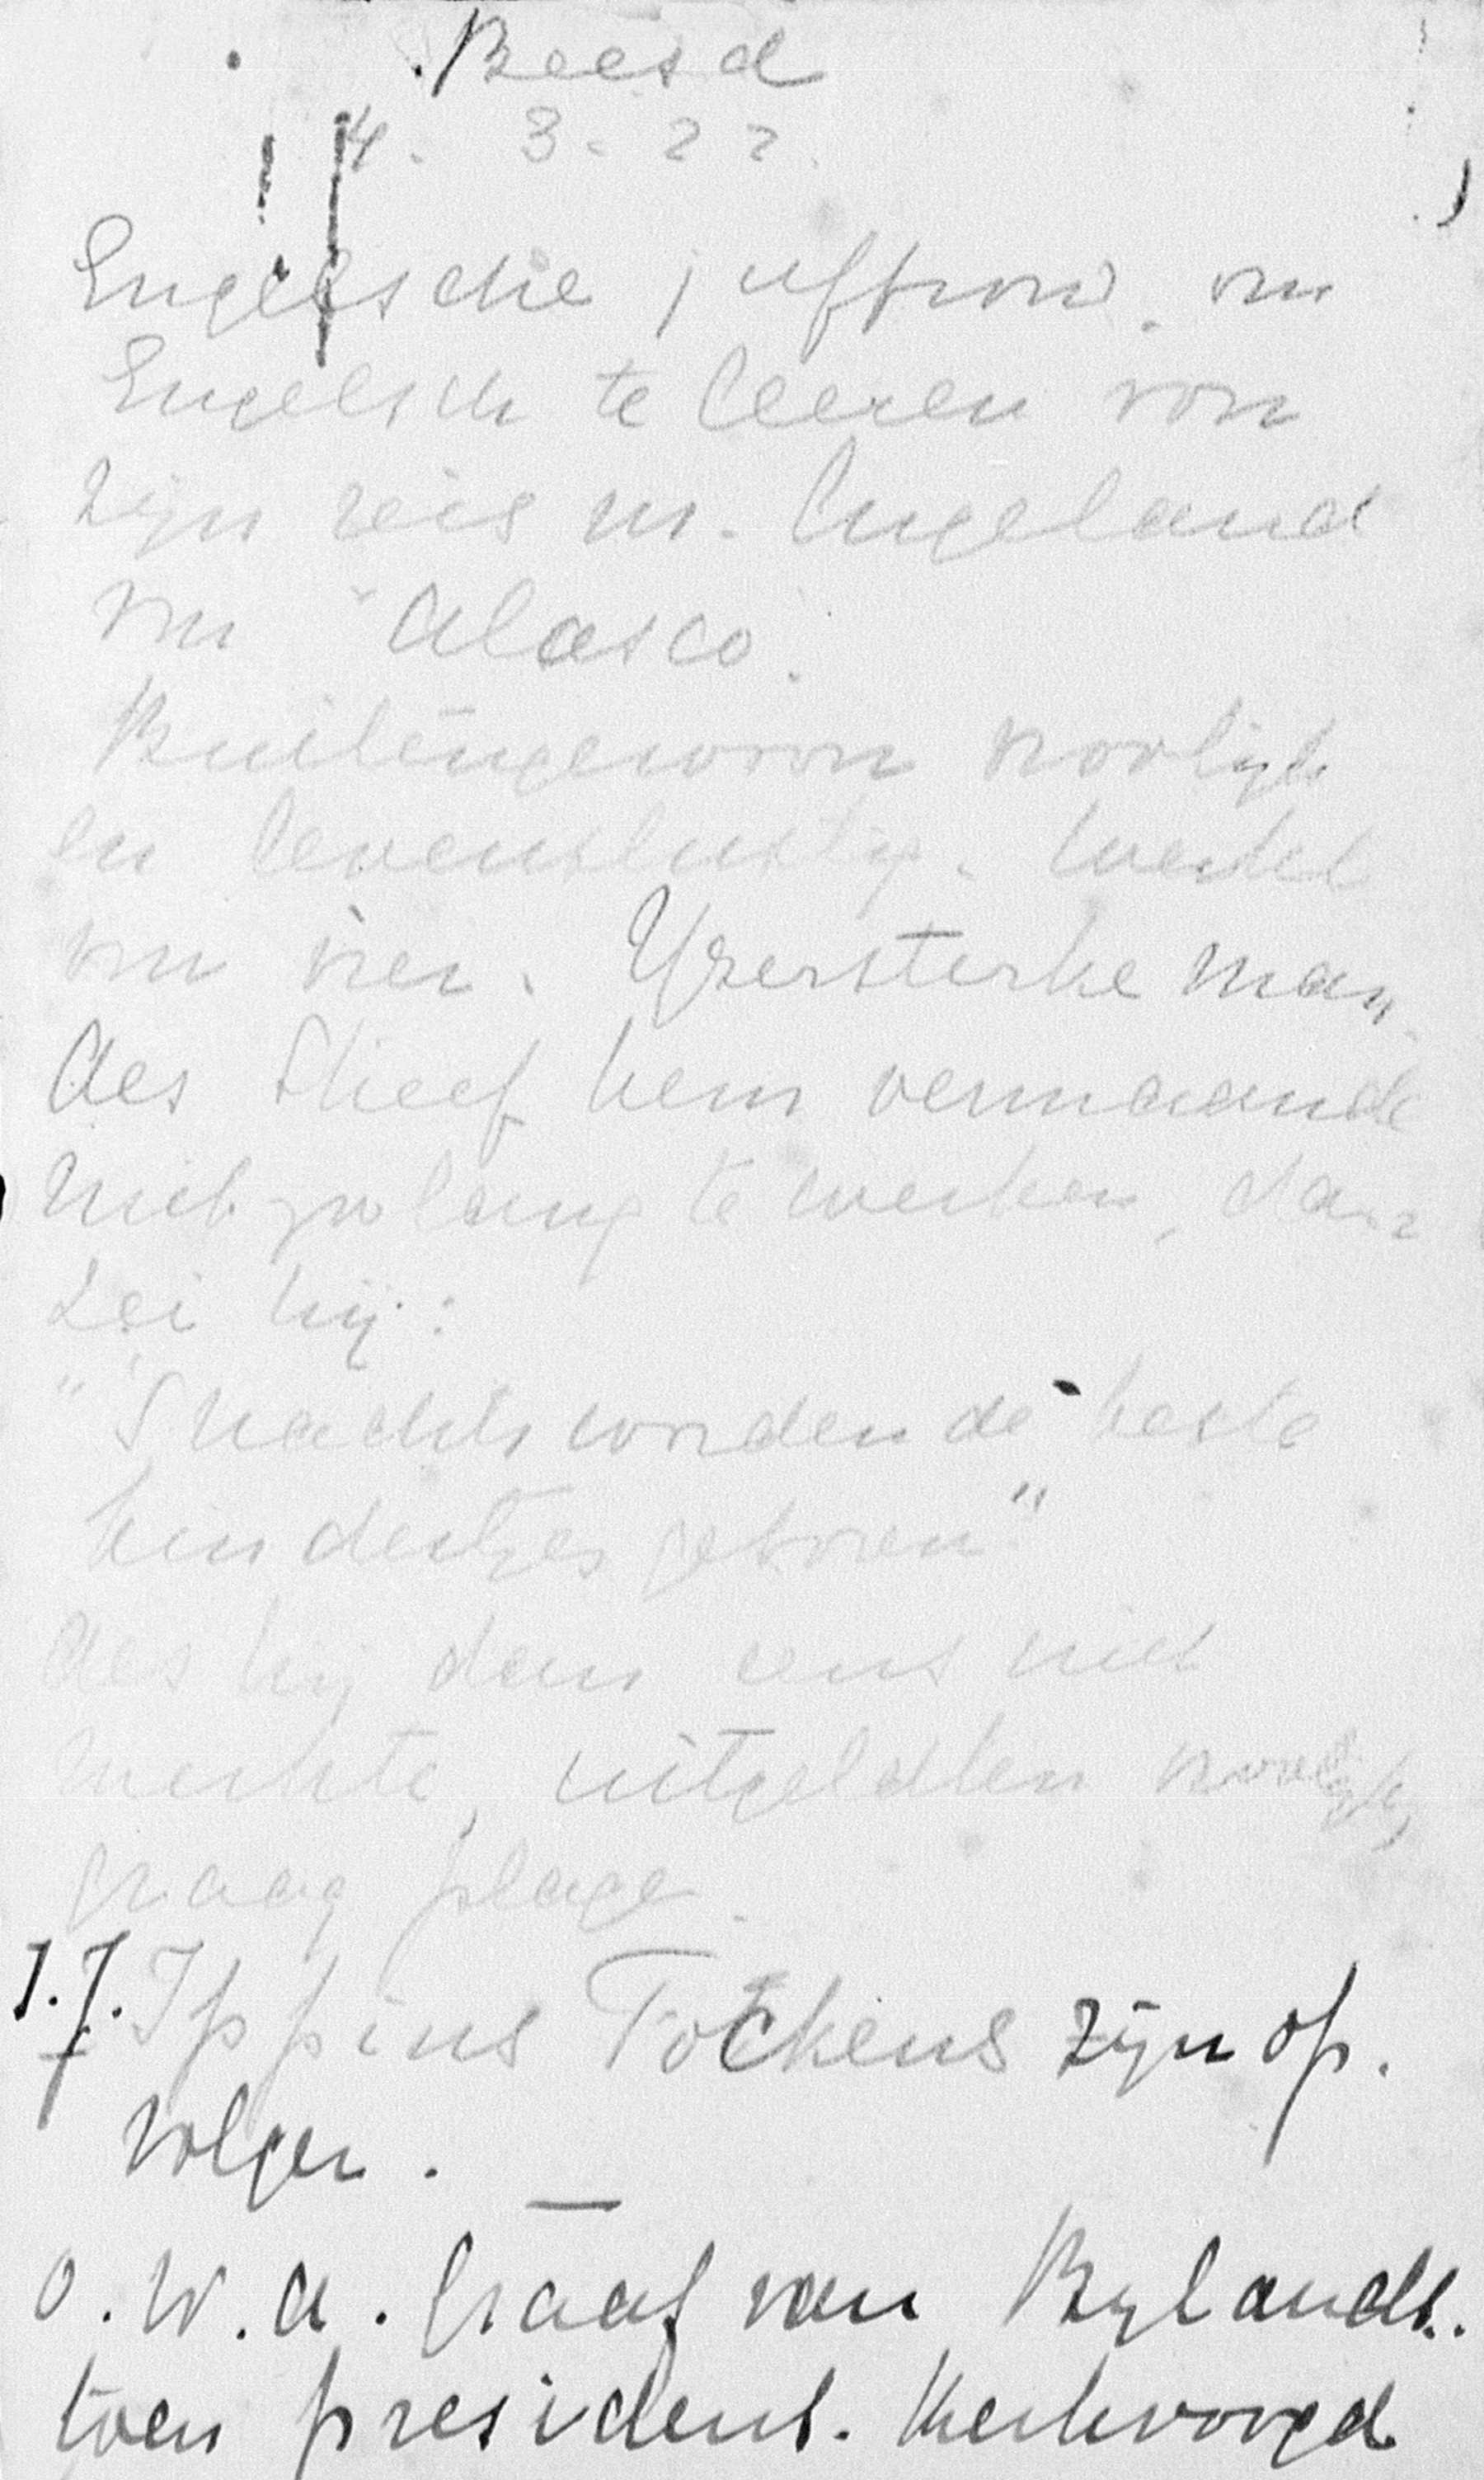 Beesd
4. 3. 22.
Engelsche juffrouw. om
Engelsch te leeren voor
zijn reis nr. Engeland
om Alasco.
Buitengewoon vroolijk
en levenslustig. Werkt
om vier. Yzersterke man.
Als Stieef hem vermaande
niet zo lang te werken, dan
zei hij:
"S nachts worden de beste
kindertjes geboren"
Als hij dan eens niet
werkte, uitgelaten vroolijk,
graag plage.
J.J. Ippius Fockens zijn op.
volger.
O. W. A. Graaf van Bylandt.
toen president. Kerkvoogd